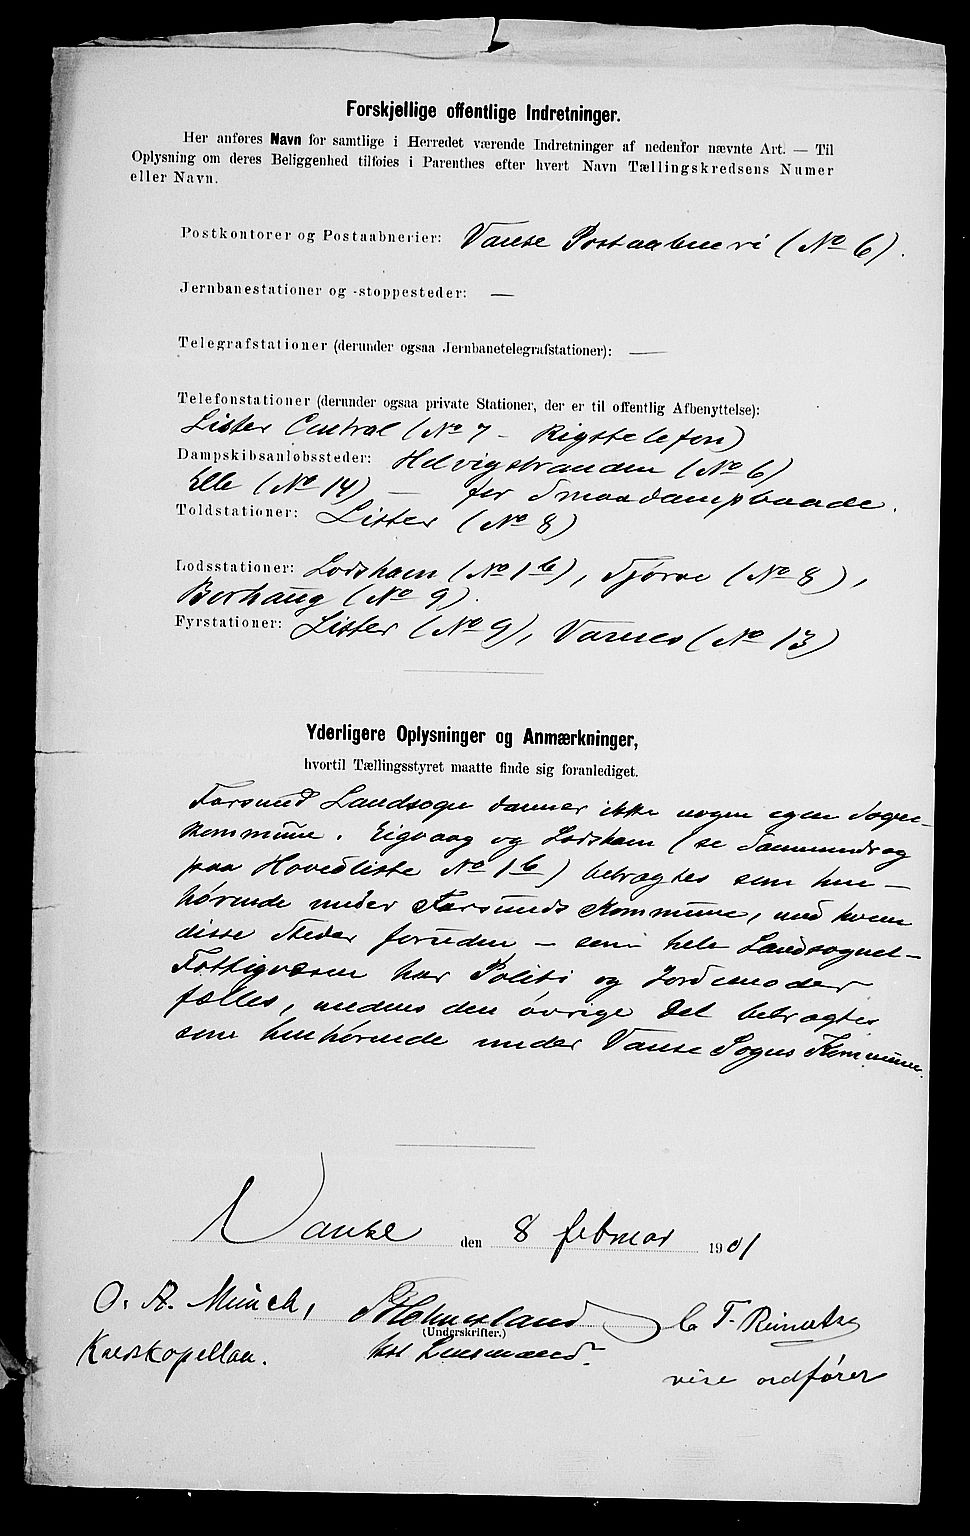 Forskjellige offentlige Indretninger.
Her anføres Navn for samtlige i Herredet værende Indretninger af nedenfor nævnte Art. — Til
Oplysning om deres Beliggenhed tilføies i Parenthes efter hvert Navn Tællingskredsens Numer
eller Navn.
Postkontorer og Postaabnerier: Vanse Postaabneri (No 6).
Jernbanestationer og -stoppesteder: —
Telegrafstationer (derunder ogsaa Jernbanetelegrafstationer): —
Telefonstationer (derunder ogsaa private Stationer, der er til offentlig Afbenyttelse):
Lister Central (No 7 - Rigstelefon)
Dampskibsanløbssteder: Helvigstranden (No 6)
Elle (No 14) — for Smaadampbaade.
Toldstationer: Lister (No 8)
Lodsstationer: Lodshavn (No 1b), Tjørve (No 8),
Borhaug (No 9).
Fyrstationer: Lister (No 9), Varnes (No 13)
Yderligere Oplysninger og Anmærkninger,
hvortil Tællingsstyret maatte finde sig foranlediget.
Farsund Landsogn danner ikke nogen egen Sogne-
kommune. Eigvaag og Lodshavn (se Sammendrag
paa Hovedliste No 1b) betragtes som hen-
hørende under Farsunds Kommune, med hvem
disse Steder foruden - som hele Landsognet -
Fattigvæsen har Politi og Jordemoder
fælles, medens den øvrige Del betragtes
som henhørende under Vanse Sogns Kommune.
Vanse den 8 februar 1901
O. A. Münch, C. T.
(Underskrifter.)
Kaldskapellan. Lensmand.
vise ordfører